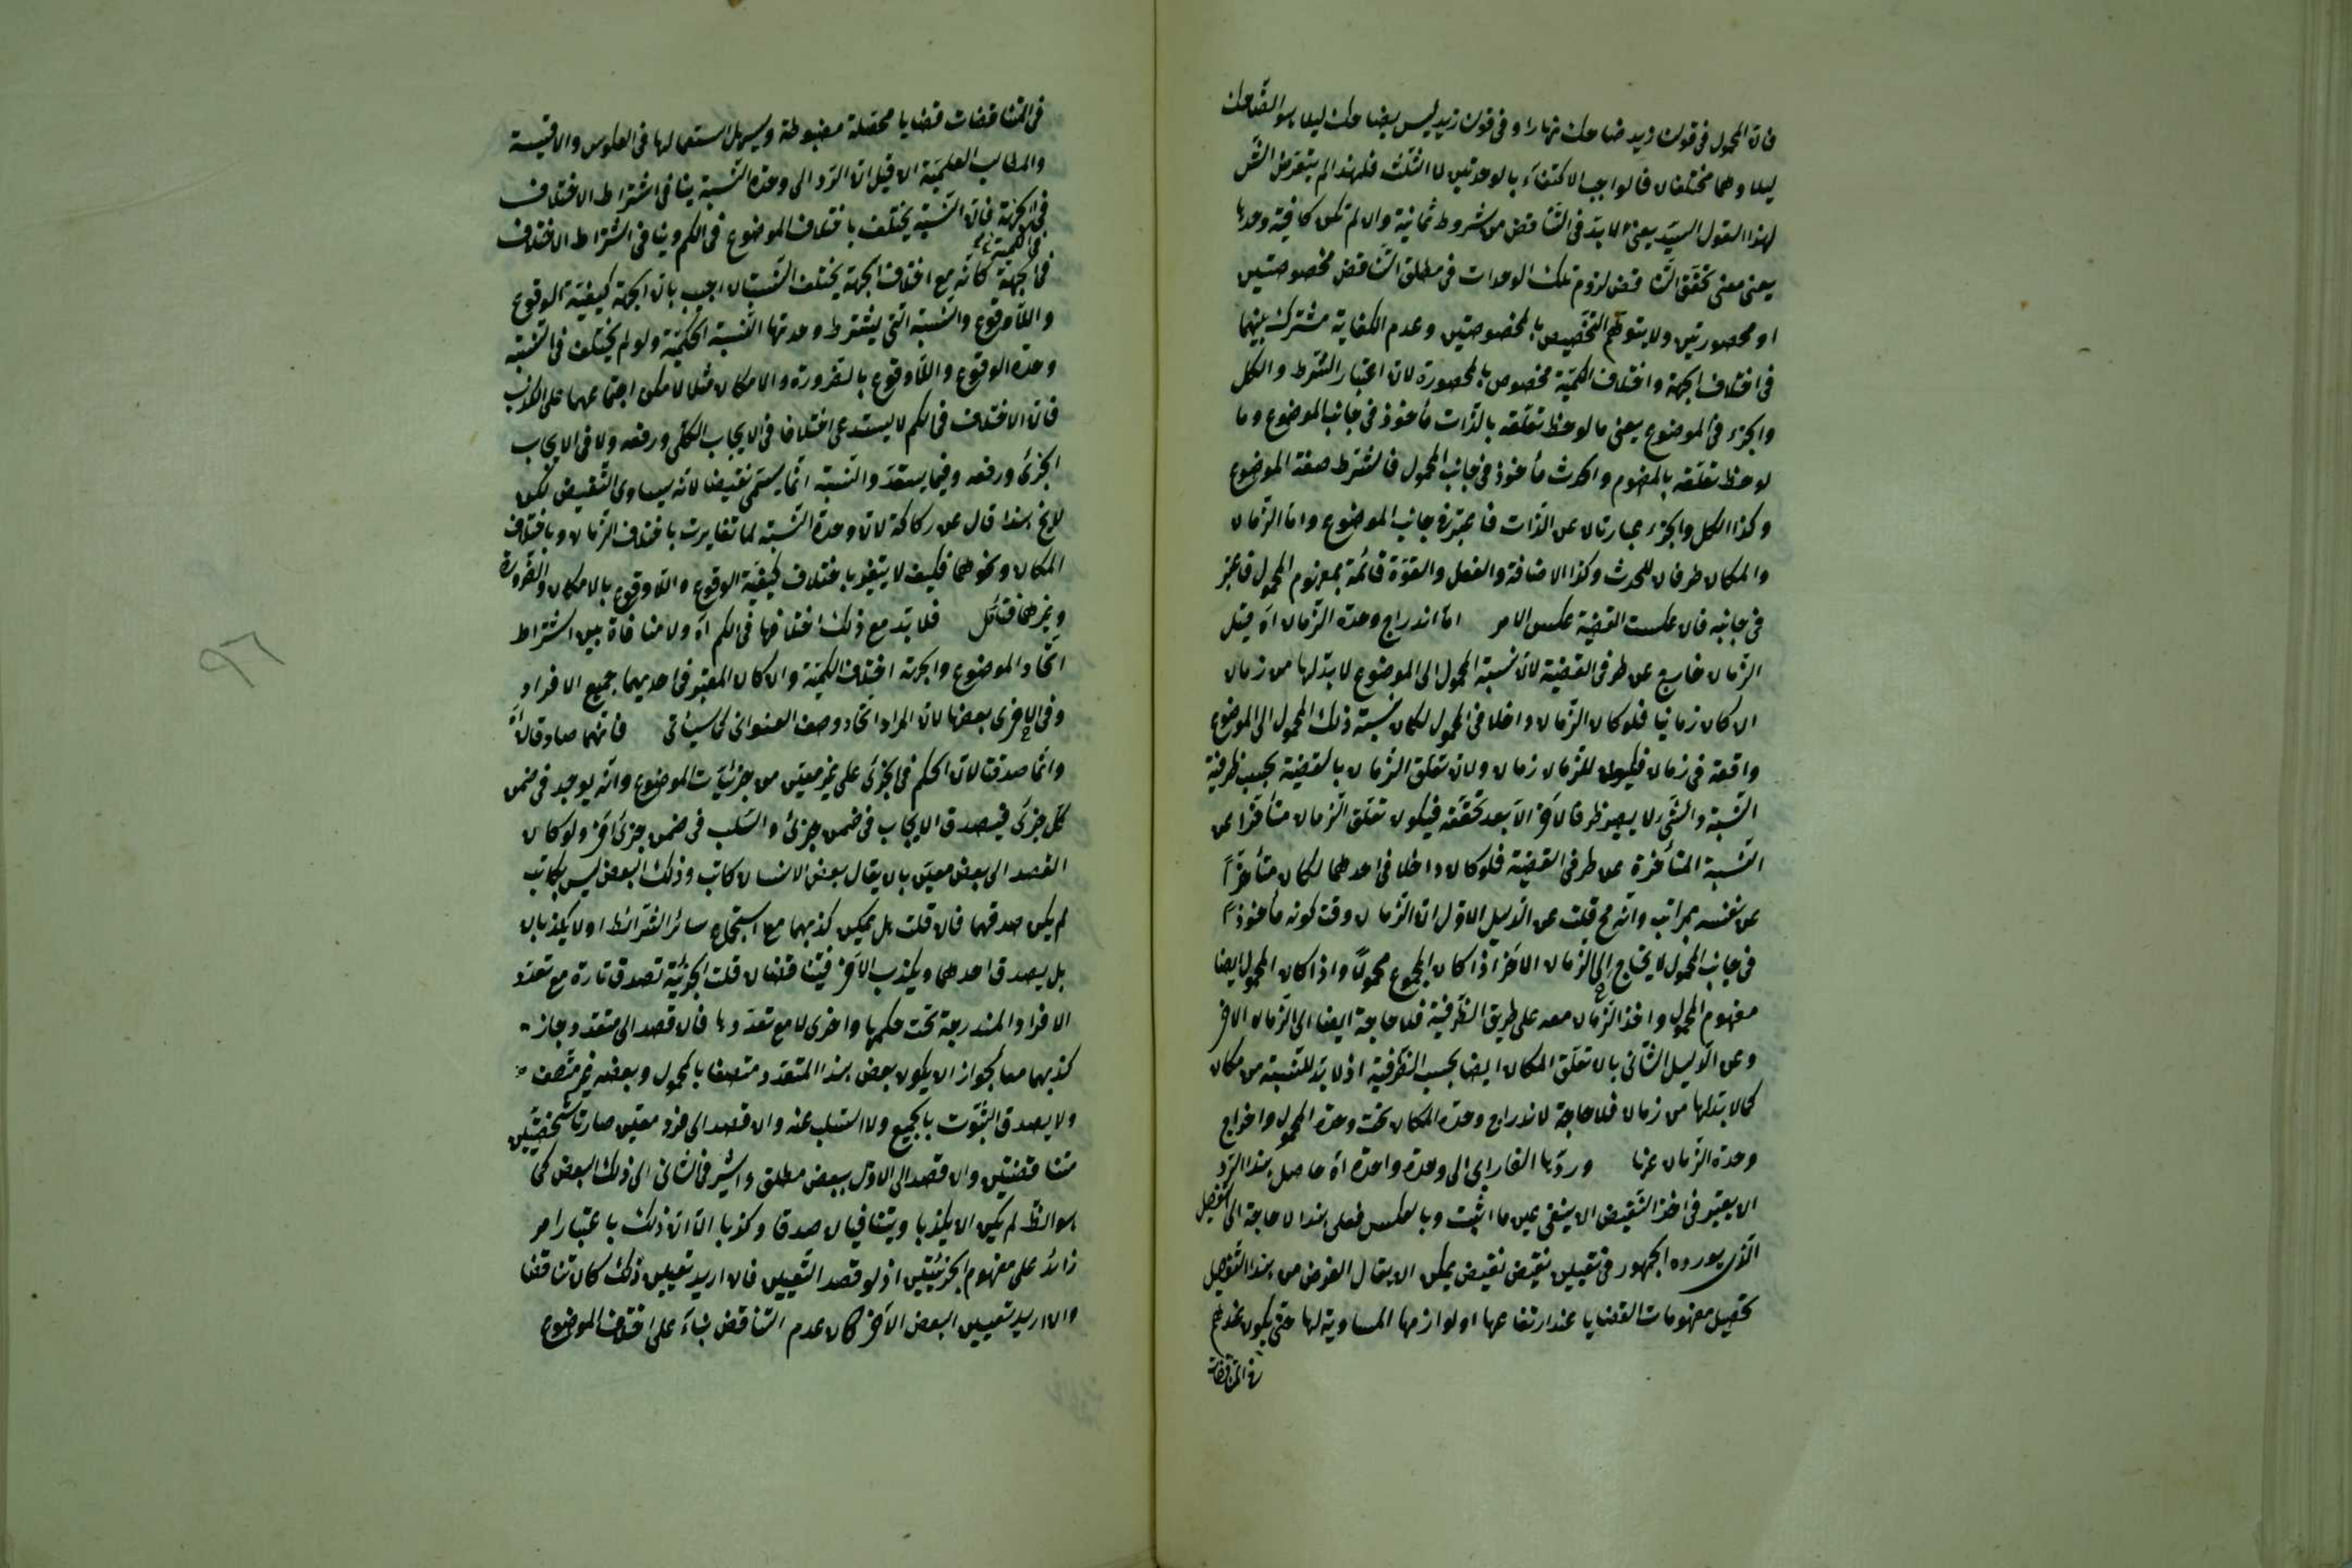 فان المحمول فى قولك زيد ضاحك نهارا و فى قولك زيد ليس بضاحك ليلا هو الضاحك
ليلا وهما مختلفان فالواجب الاكتفاء بالوحدتين لا الثلث فلهذا لم يتعرض الش
لهذا القول السيد يعنى لا بد فى التناقض من شروط ثمانية وان لم تكن كافية وحدها
يعنى معنى تحقق التناقض لزوم تلك الوحدات فى مطلق التناقض مخصوصتين
او محصورتين ولا يتوهم التخصيص بالمخصوصتين وعدم الكفاية مشترك بينهما
فى اختلاف الجهة واختلاف الكمية مخصوص بالمحصورة لان اعتبار الشرط والكل
والجزء فى الموضوع يعنى ما لوحظ تعلقه بالذات مأخوذ فى جانب الموضوع وما
لوحظ تعلقه بالمفهوم والحدث مأخوذ فى جانب المحمول فالشرط صفة الموضوع
وكذا الكل والجزء عبارتان عن الذات فاعتبر فى جانب الموضوع واما الزمان
والمكان ظرفان للحدث وكذا الاضافة والفعل والقوة قائمة بمفهوم المحمول فاعتبر
فى جانبه فان عكست القضية عكس الامر اما اندراج وحدة الزمان اه قيل
الزمان خارج عن طرفى القضية لان نسبة المحمول الى الموضوع لا بد لها من زمان
ان كان زمانيا فلو كان الزمان داخلا فى المحمول لكان نسبة ذلك المحمول الى الموضوع
واقعة فى زمان فيكون للزمان زمان ولان تعلق الزمان بالقضية بحسب ظرفية
النسبة والشئ لا يصير ظرفا لاخر الا بعد تحققه فيكون تعلق الزمان متأخرا عن
النسبة المتأخرة عن طرفى القضية فلو كان داخلا فى احدهما لكان متأخرا
عن نفسه بمراتب وانه مح قلت عن الدليل الاول ان الزمان وقت كونه مأخوذا
فى جانب المحمول لا يحتاج الى الزمان الاخر اذا كان المجموع محمولا واذا كان المحمول ايضا
مفهوم المحمول واخذ الزمان معه على طريق الظرفية فلا حاجة ايضا الى الزمان الاخر
وعن الدليل الثانى بان تعلق المكان ايضا بحسب الظرفية اذ لا بد للنسبة من مكان
كما لا بد لها من زمان فلا حاجة لاندراج وحدة المكان تحت وحدة المحمول واخراج
وحدة الزمان عنها وردها الفارابى الى وحدة واحدة اه حاصل هذا الرد
ان يعتبر فى اخذ النقيض ان ينفى عين ما اثبت وبالعكس فعلى هذا لا حاجة الى التفصيل
الذى يورده الجمهور فى تعيين نقيض نقيض يمكن ان يقال الغرض من هذا التفصيل
تحصيل مفهومات القضايا عند ارتفاعها او لوازمها المساوية لها حتى يكون عندهم
فى المتناقضات
فى المتناقضات قضايا محصلة مضبوطة ويسهل استعمالها فى العكوس والاقيسة
والمطالب العلمية الا قيل ان الرد الى وحدة النسبة ينافى اشتراط الاختلاف
فى الجهة فان النسبة يختلف باختلاف الموضوع فى الكم وينافى اشتراط الاختلاف
فى الكمية
فى الجهة كأنه مع اختلاف الجهة يختلف النسبتان اجيب بان الجهة كيفية الوقوع
واللاوقوع والنسبة التى يشترط وحدتها النسبة الحكمية ولو لم يختلف فى النسبة
وحدة الوقوع واللاوقوع بالضرورة والامكان مثلا لامكن اجتماعهما على الكذب
فان الاختلاف فى الكم لا يستدعى اختلافا فى الايجاب الكلى ورفعه ولا فى الايجاب
الجزئى ورفعه وفيما يستعد والنسبة انما يسمى نقيضا لانه يساوى النقيض لكن
لا يخ هذا قال عن ركاكة لان وحدة النسبة لما تغايرت باختلاف الزمان وباختلاف
المكان ونحوهما فكيف لا يتغير باختلاف كيفية الوقوع واللاوقوع بالامكان والضرورة
وغيرهما فتأمل فلا بد مع ذلك اختلافها فى الكم اه ولا منافاة بين اشتراط
اتحاد الموضوع والجزئية اختلاف الكمية وان كان المعتبر فى احديهما جميع الافراد
وفى الاخرى بعضها لان المراد اتحاد وصف العنوانى كما سيأتى فانهما صادقان اه
وانما صدقتا لان الحكم فى الجزئى على غير معين من جزئيات الموضوع وانه يوجد فى ضمن
كل جزئى فيصدق الايجاب فى ضمن جزئى والسلب فى ضمن جزئى اخر ولو كان
القصد الى بعض معين بان يقال بعض الانسان كاتب وذلك البعض ليس بكاتب
لم يكن صدقهما فان قلت هل يمكن كذبهما مع استجماع سائر الشرائط او لا يكذبان
بل يصدق احدهما ويكذب الاخر فيتناقضان قلت الجزئية تصدق تارة مع تعدد
الافراد المندرجة تحت حكمها واخرى لا مع تعددها فان قصد الى متعدد جاز
كذبهما معا لجواز ان يكون بعض هذا المتعدد متصفا بالمحمول وبعضه غير متصف
ولا يصدق الثبوت بالجميع ولا السلب عنه وان قصد الى فرد معين صارتا شخصيتين
متناقضتين وان قصد الى الاول ببعض مطلق واشير فى الثانى الى ذلك البعض كما
هو الظ لم يكن ان يكذبا ويتنافيان صدقا وكذبا الا ان ذلك باعتبار امر
زائد على مفهوم الجزئيتين اذ لو قصد التعيين فان اريد تعيين ذلك كان تناقضا
وان اريد تعيين البعض الاخر كان عدم التناقض بناء على اختلاف الموضوع
٩٦